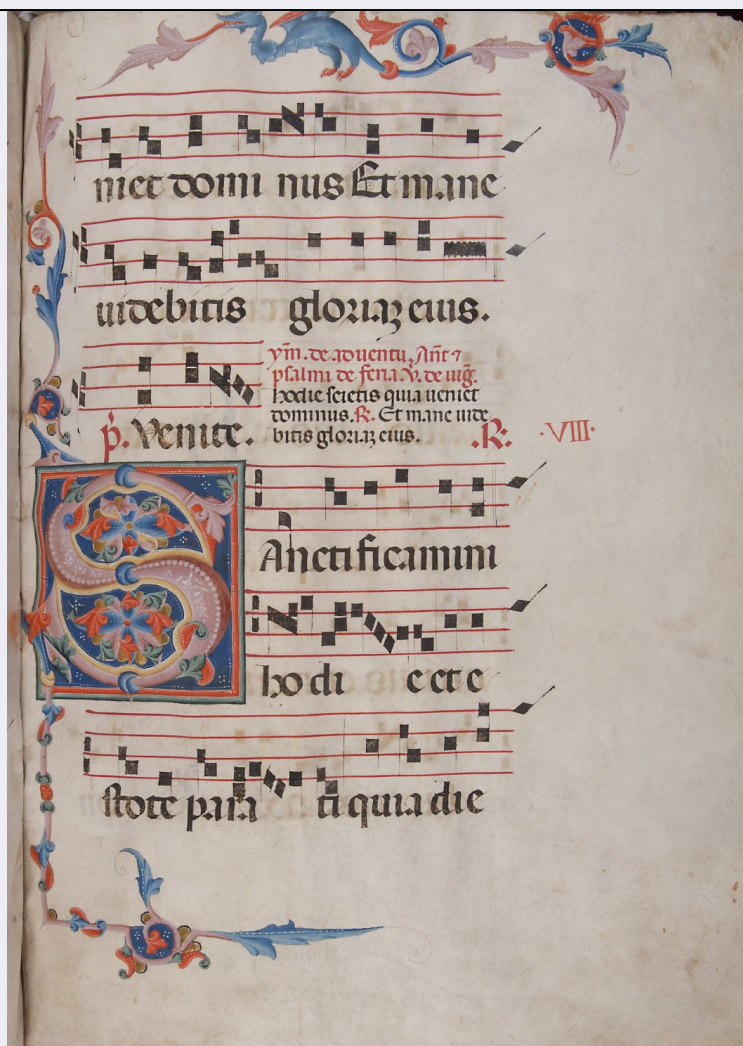 niet domi nus Et mane
uidebitis gloriaꝫ eius.
p̓. Venite.
ym̄. de aduentu. Añt ⁊
psalmi de feria. v̓. de uig̃.
hodie scietis quia ueniet
dominus. R. Et mane uide
bitis gloriaꝫ eius. .R: ·VIII·
SAnctificamini
hodi e et e
stote para ti quia die